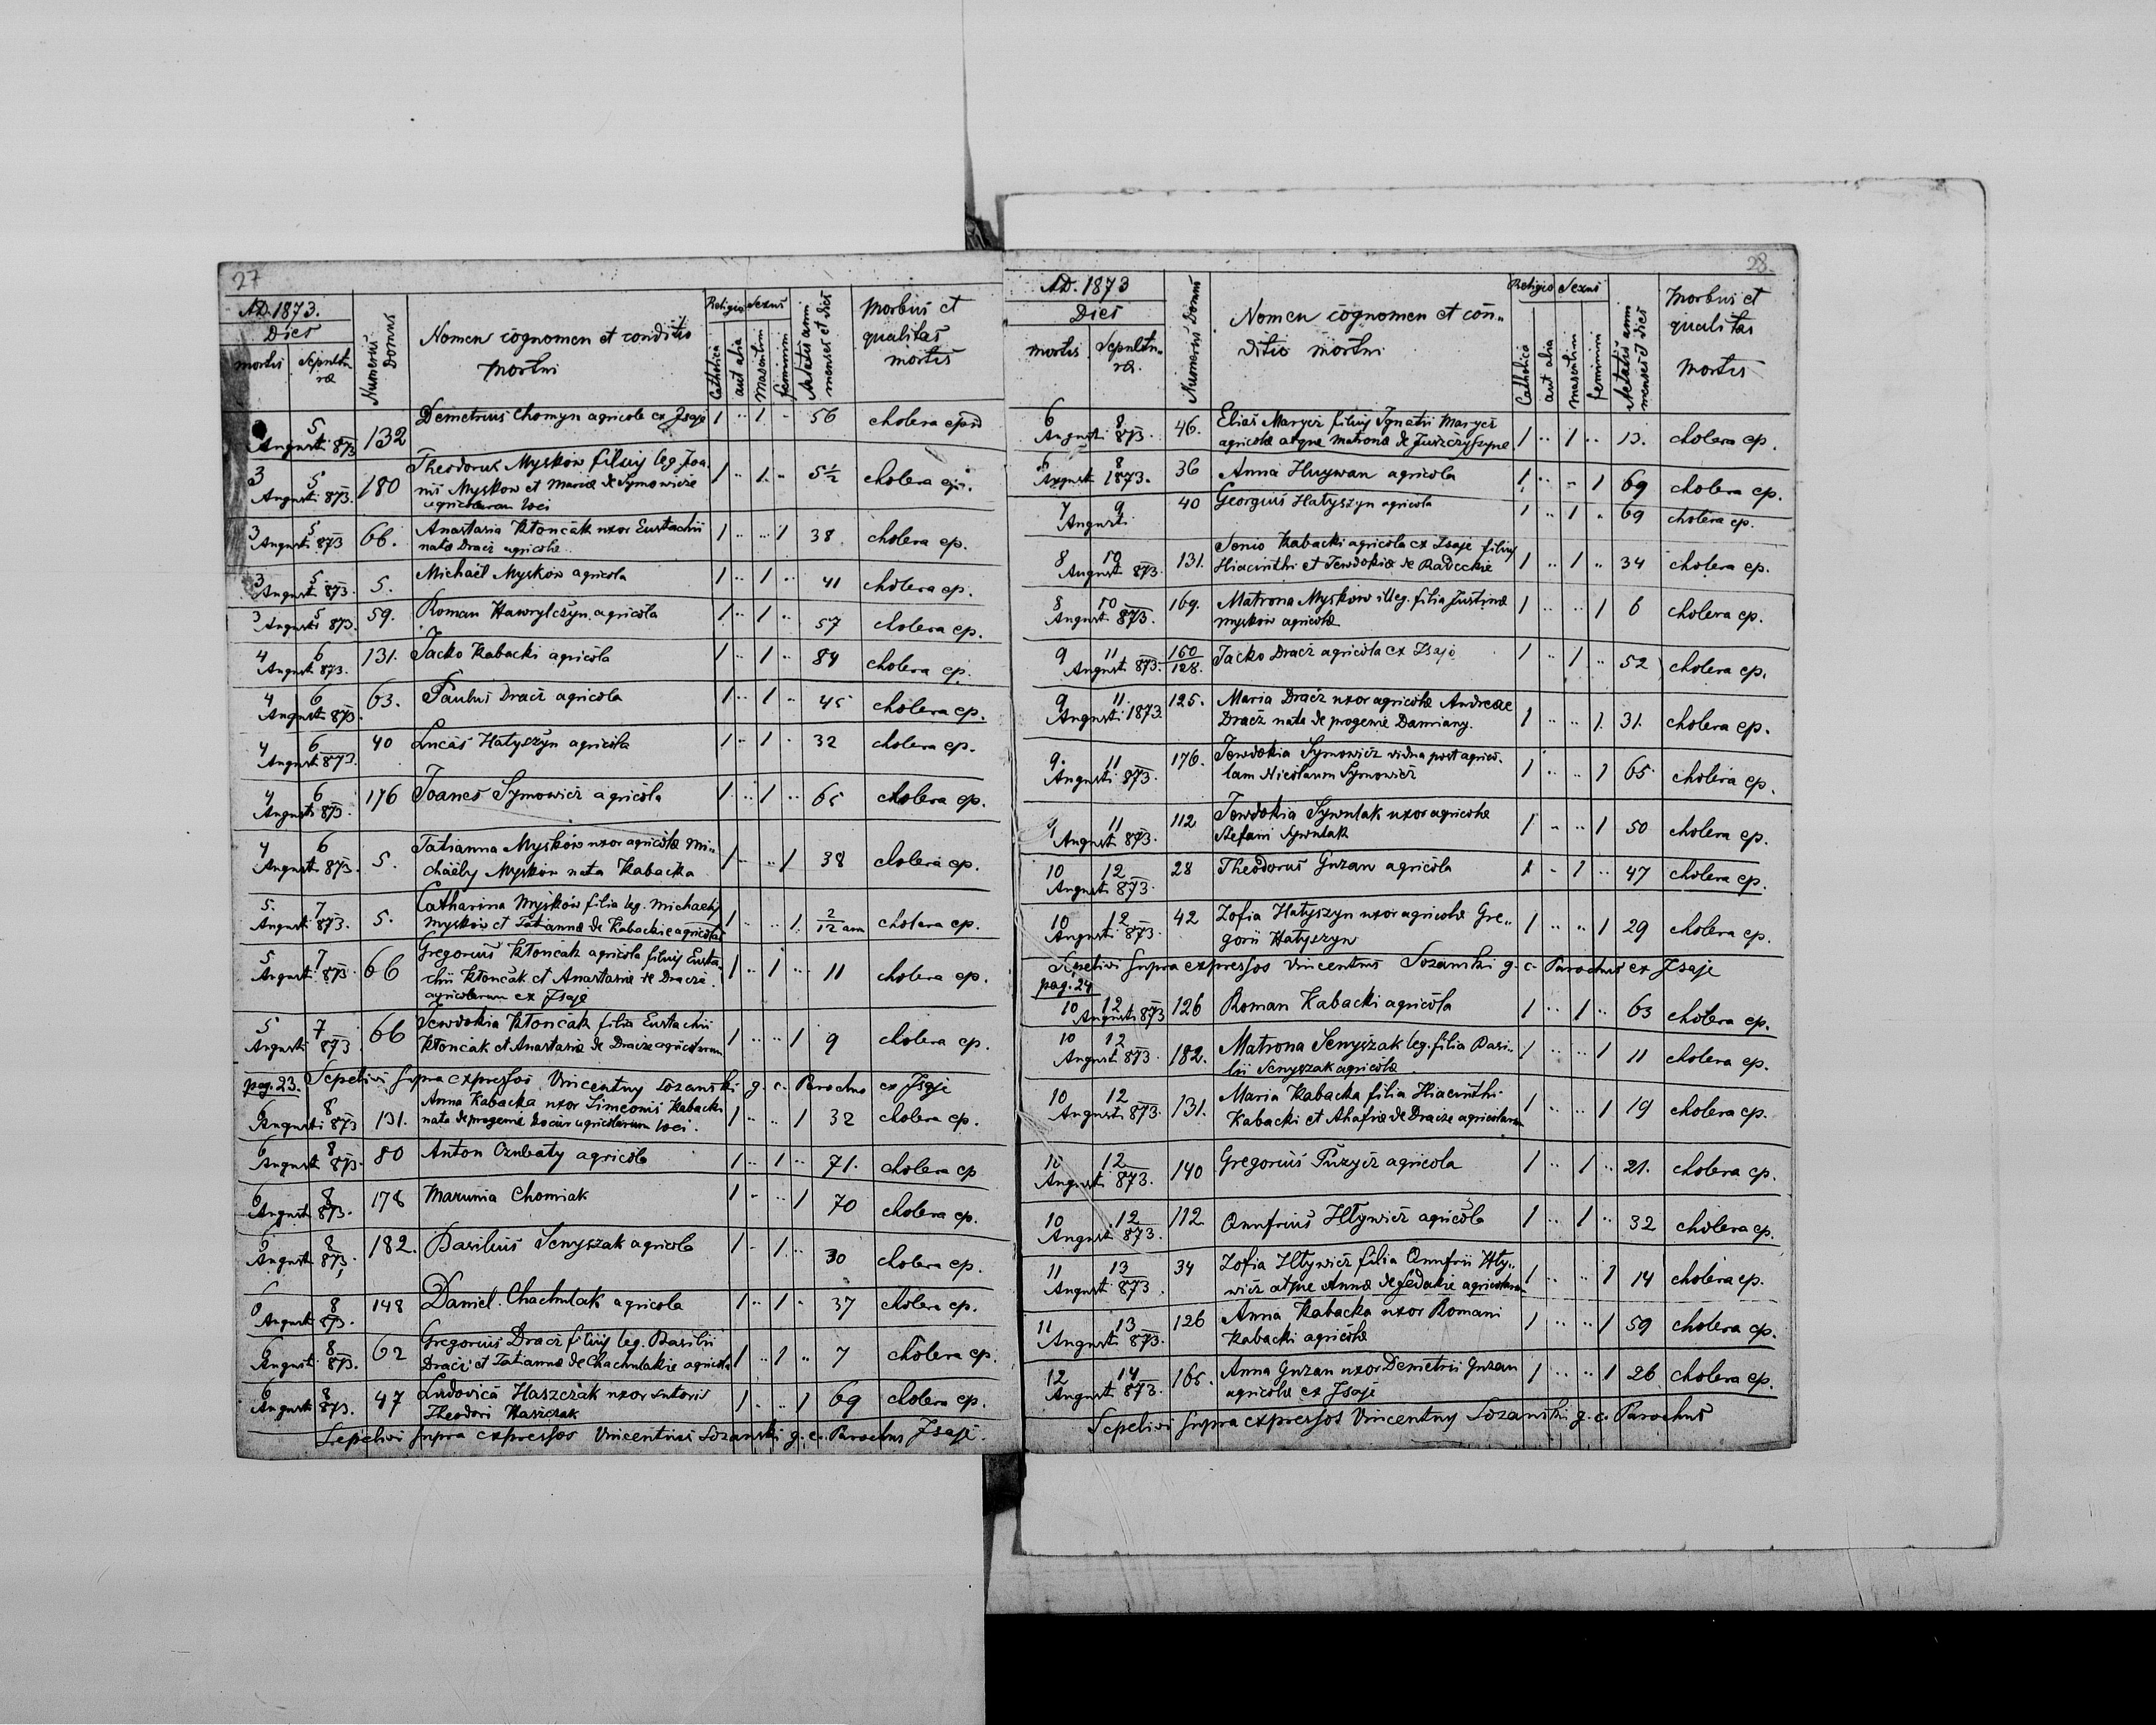 27
AD. 1873.
Dies
mortis Sepultu
ræ
Numerus Domus
Nomen cognomen et conditio
mortui
Religio Sexus
Catholica
aut alia
masculinum
femininum
Aetatis anni
menses et dies
Morbus et
qualitas
mortis
5 Augusti 873 132 Demetrius Chomyn agricola ex Isaje 1 .. 1 .. 56 cholera epid
3 5 Augusti 873. 180 Theodorus Myśków filius leg. Joa
nis Myskow et Mariæ de Symowicze
agricolarum loci 1 .. 1 .. 5 1/2 cholera epi.
3 5 Augusti 873 66. Anastasia Kłonćak uxor Eustachii
nata Dracz agricolæ 1 .. .. 1 38 cholera ep.
3 5 Augusti 873. 5. Michaël Myśków agricola 1 .. 1 .. 41 cholera ep.
3 5 Augusti 873. 59. Roman Hawrylczyn agricola 1 .. 1 .. 57 cholera ep.
4 6 Augusti 873. 131. Jacko Kabacki agricola 1 .. 1 .. 84 cholera ep.
4 6 Augusti 873. 63. Paulus Dracz agricola 1 .. 1 .. 45 cholera ep.
4 6 Augusti 873. 40 Lucas Hatyszyn agricola 1 .. 1 .. 32 cholera ep.
4 6 Augusti 873. 176 Joanes Symowicz agricola 1 .. 1 .. 65 cholera ep.
4 6 Augusti 873. 5. Tatianna Myśków uxor agricolæ Mi..
chaëly Myśków nata Kabacka 1 .. .. 1 38 cholera ep.
5. 7 Augusti 873. 5. Catharina Myśków filia leg. Michaely
Myśków et Tatiannæ de Kabackie agricolæ 1 .. .. 1. 2/12 ann cholera ep.
5 7 Augusti 873. 66 Gregorius Kłonćak agricola filius Eusta..
chii Kłonćak et Anastasiæ de Dracze
agricolarum ex Isaje 1 .. 1 .. 11 cholera ep.
5 7 Augusti 873 66 Tewdokia Kłonćak filia Eustachii
Kłonćak et Anastasiæ de Dracze agricolarum 1 .. .. 1 9 cholera ep.
pag. 23. Sepelivi supra expressos Vincentiy Sozanski g. c. Parochus ex Isaje
6 8 Augusti 873 131. Anna Kabacka uxor Simeonis Kabacki
nata de progenie Kociur agricolarum loci. 1 .. .. 1 32 cholera ep.
6 8 Augusti 873. 80 Anton Czubaty agricola 1 .. 1 .. 71. cholera ep
6 8 Augusti 873. 178 Marunia Chomiak 1 .. .. 1 70 cholera ep.
6 8 Augusti 873. 182. Basilius Senyszak agricola 1 .. 1 .. 30 cholera ep.
6 8 Augusti 873. 148 Daniel Chachulak agricola 1 .. 1 .. 37 cholera ep.
6 8 Augusti 873. 62 Gregorius Dracz filius leg. Basilii
Dracz et Tatiannæ de Chachulakie agricola 1 .. 1 .. 7 cholera ep.
6 8 Augusti 873. 47 Ludovica Haszczak uxor sutoris
Theodori Haszczak 1 .. .. 1 69 cholera ep.
Sepelivi supra expressos Vincentius Sozanski g. c. Parochus Isaje.
28.
AD. 1873
Dies
mortis Sepultu..
ræ.
Numerus Domus
Nomen cognomen et con..
ditio mortui
Religio Sexus
Catholica
aut alia
masculinum
femininum
Aetatis anni
menses et dies
Morbus et
qualitas
mortis
6 8 Augusti 873. 46. Elias Marycz filius Ignatii Marycz
agricolæ atque Matronæ de 1 .. 1 .. 13. cholera ep.
6 8 Augusti 1873. 36 Anna Hrywan agricola 1 .. .. 1 69 cholera ep.
7 9 Augusti 40 Georgius Hatyszyn agricola 1 .. 1 .. 69 cholera ep.
8 10 Augusti 873. 131. Senio Kabacki agricola ex Isaje filius
Hiacinthi et Tewdokiæ de Radeckie 1 .. 1 .. 34 cholera ep.
8 10 Augusti 873. 169. Matrona Myskow illeg. filia Justinæ
Myśków agricolæ 1 .. .. 1 6 cholera ep.
9 11 Augusti 873. 160/128. Jacko Dracz agricola ex Isaje 1 .. 1 .. 52 cholera ep.
9 11 Augusti 1873. 125. Maria Dracz uxor agricolæ Andreæ
Dracz nata de progenie Damiany. 1 .. .. 1. 31. cholera ep.
9. 11 Augusti 873. 176. Tewdokia Symowicz vidua post agrico..
lam Nicolaum Symowicz 1 .. .. 1 65 cholera ep.
9 11 Augusti 873. 112 Tewdokia Sywulak uxor agricolæ
Stefani Sywulak 1 .. .. 1 50 cholera ep.
10 12 Augusti 873. 28 Theodorus Guzan agricola 1 .. 1 .. 47 cholera ep.
10 12 Augusti 873. 42 Zofia Hatyszyn uxor agricolæ Gre..
gorii Hatyszyn 1 .. .. 1 29 cholera ep.
Sepelivi supra expressos Vincentius Sozanski g. c. Parochus ex Isaje
pag. 24
10 12 Augusti 873 126 Roman Kabacki agricola 1 .. 1 .. 63 cholera ep.
10 12 Augusti 873. 182. Matrona Senyszak leg. filia Basi..
lii Senyszak agricolæ 1 .. .. 1 11 cholera ep.
10 12 Augusti 873. 131. Maria Kabacka filia Hiacinthi
Kabacki et Ahafiæ de Dracze agricolarum 1 .. .. 1 19 cholera ep.
10 12 Augusti 873. 140 Gregorius Puzycz agricola 1 .. 1 .. 21. cholera ep.
10 12 Augusti 873. 112. Onufrius Hływicz agricola 1 .. 1 .. 32 cholera ep.
11 13 Augusti 873. 34 Zofia Hływicz filia Onufrii Hły..
wicz atque Annæ de Fedakie agricolarum 1 .. .. 1 14 cholera ep.
11 13 Augusti 873. 126 Anna Kabacka uxor Romani
Kabacki agricolæ 1 .. .. 1 59 cholera ep.
12 14 Augusti 873. 165. Anna Guzan uxor Demetrii Guzan
agricolæ ex Isaje 1 .. .. 1 26 cholera ep.
Sepelivi supra expressos Vincentiy Sozanski g. c. Parochus